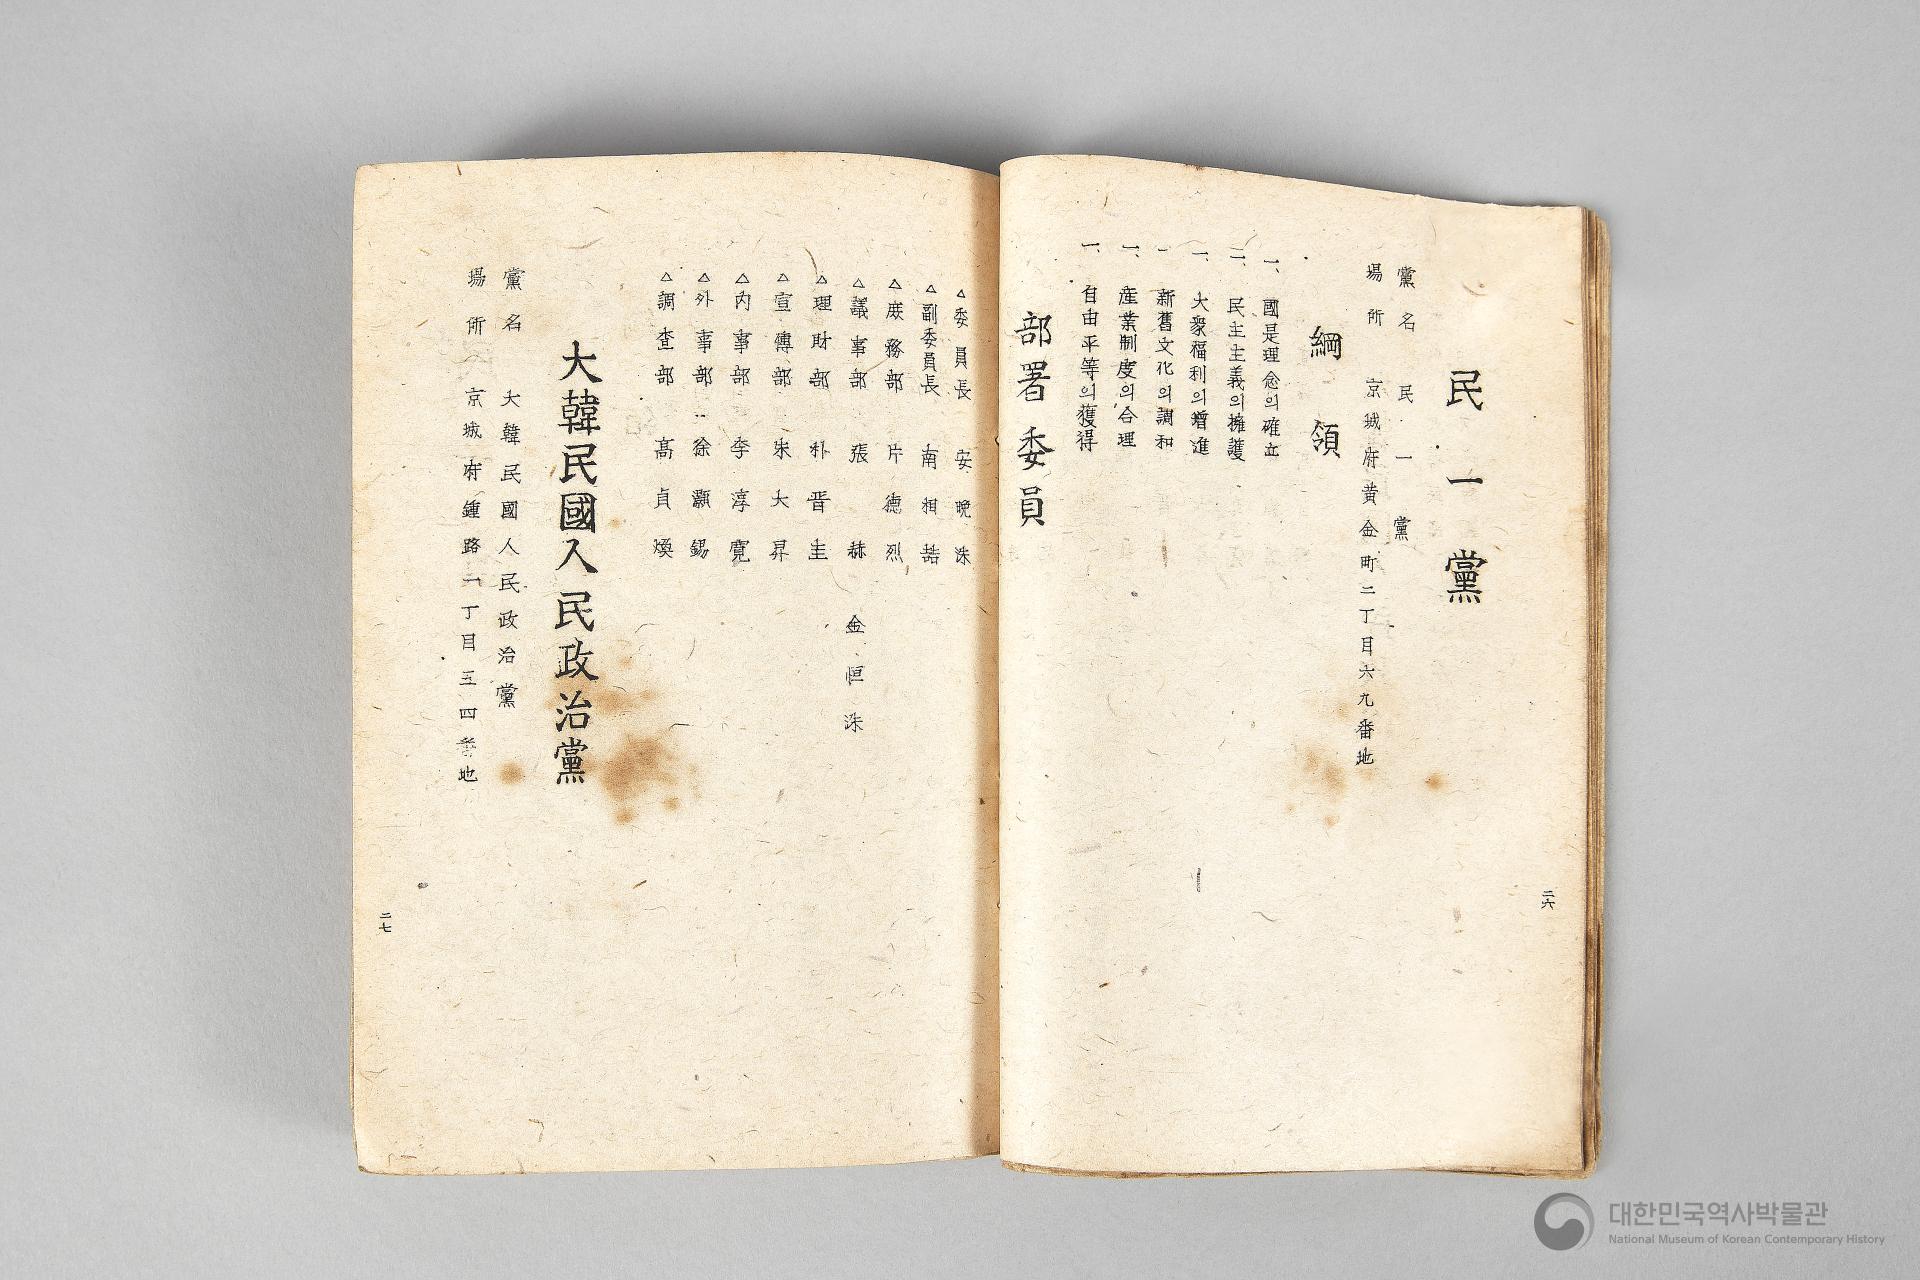 民一黨
黨名 民一黨
場所 京城府黃金町二丁目六九番地
綱領
一、國是理念의確立
一、民主主義의擁護
一、大衆福利의增進
一 新舊文化의調和
一、産業制度의合理
一、自由平等의獲得
部署委員
二六
△委員長 安晩洙
△副委員長 南相喆
△庶務部 片德烈
△議事部 張赫 金恒洙
△理財部 朴晋圭
△宣傳部 朱大昇
△內事部 李淳寬
△外事部 徐灝錫
△調查部 高貞煥
大韓民國人民政治黨
黨名 大韓民國人民政治黨
場所 京城府鍾路一丁目五四番地
二七
대한민국역사박물관
National Museum of Korean Contemporary History